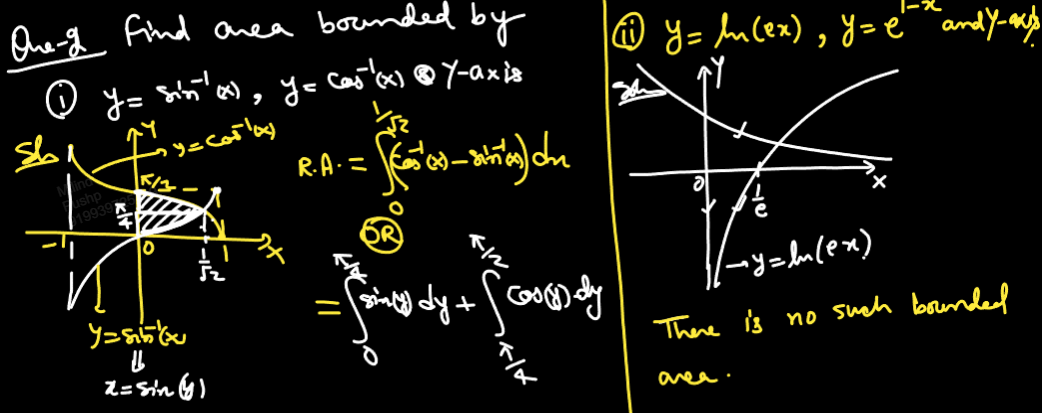 Que-g Find area bounded by
(i) y = sin⁻¹(x), y = cos⁻¹(x) & Y-axis
Soln
Y
y = cos⁻¹(x)
π/2
π/4
-1
0
1/√2
1
X
y = sin⁻¹(x)
⇓
x = sin(y)
R.A. = ∫₀^{1/√2} (cos⁻¹(x) - sin⁻¹(x)) dx
OR
= ∫₀^{π/4} sin(y) dy + ∫_{π/4}^{π/2} cos(y) dy
(ii) y = ln(ex), y = e^{1-x} and Y-axis
Soln
Y
0
1/e
X
→ y = ln(ex)
There is no such bounded
area.